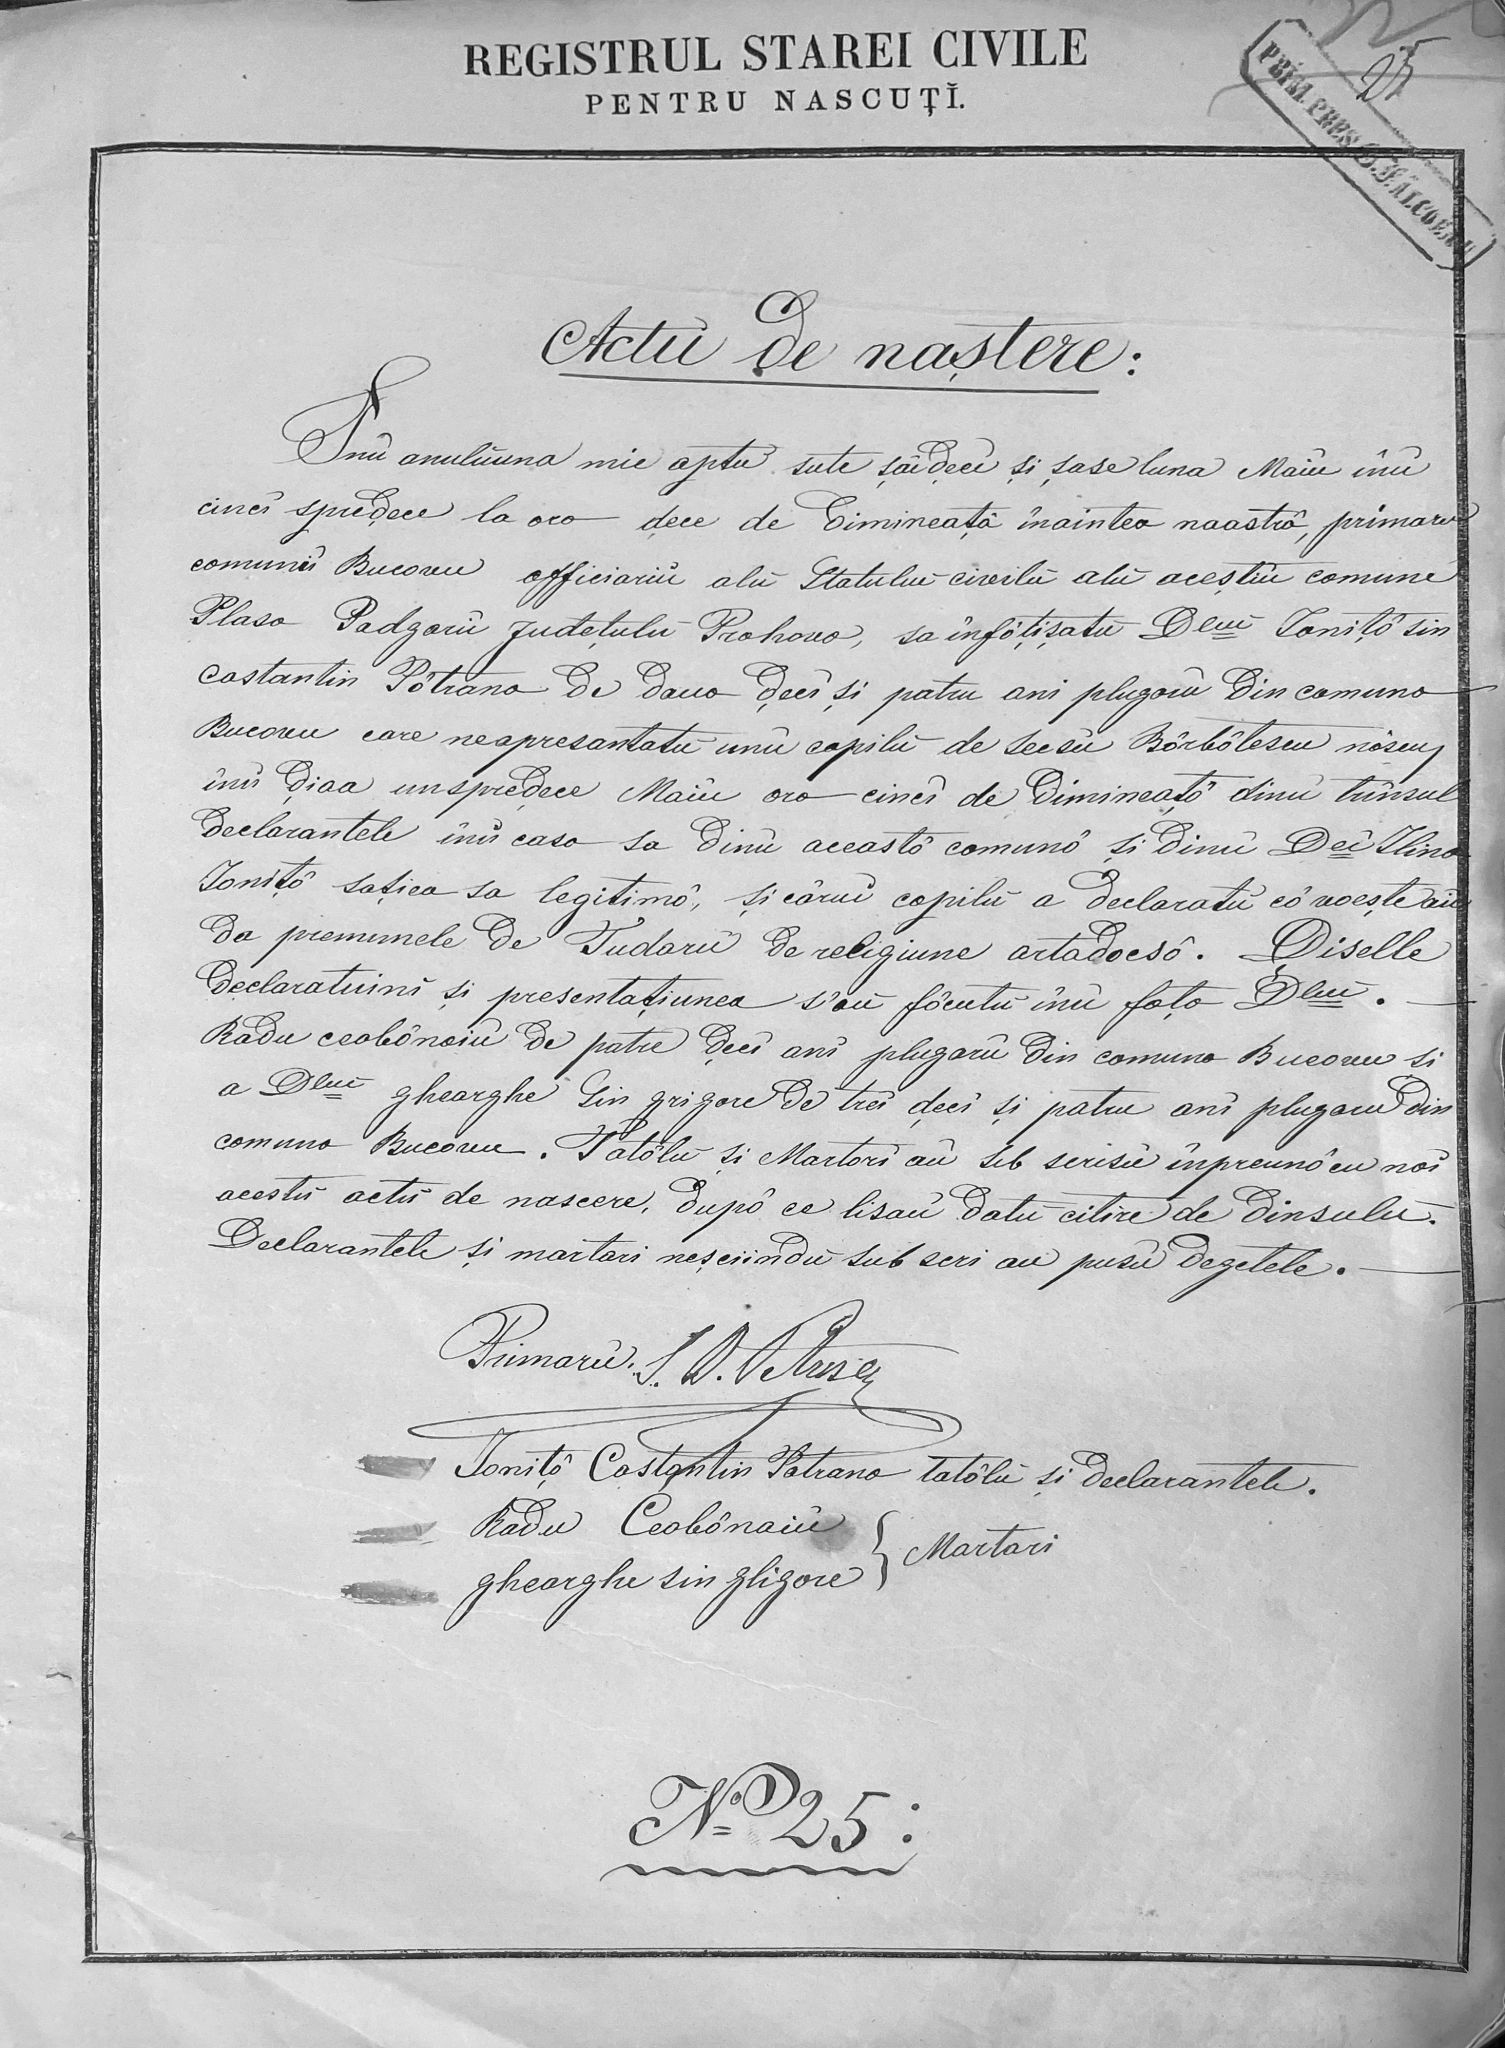 REGISTRUL STAREI CIVILE
PENTRU NASCUȚĬ.
25
PRIM. PRES.
Actŭ De naștere:
Inŭ anulŭ una mie optu sute șăi deci și șase luna Maiu înŭ
cinci spre dece la oro dece de Dimineață înaintea noastră, primaru
comuneĭ Bucovu officiariŭ alŭ Statului civilŭ alŭ aceștiĭ comune
Plasa Podgorii Județulŭ Prahova, sa înfôțișatu Dluĭ Ioniță sin
Costantin Pôtrana De Doua deci și patru ani plugarŭ Din comuna
Bucovu care neapresantatŭ unŭ copilŭ de secsŭ Bôrbôtescu nôscuț
înŭ dioa unspredece Maiŭ ora cinci de Dimineațô dinŭ tŭnsul
Declarantele înŭ casa sa Dinŭ aceastô comunô și dinŭ Dei Ilina
Ionițô soțiea sa legitimô, și cărui copilŭ a declaratŭ cô voește aiŭ
Da prenumele De Tudorŭ De religiune ortadocsô. Diselle
Declaratiunĭ și presentațiunea s'au fôcutŭ înŭ fața Dluĭ.
Radu Ceobônoiŭ De patru deci ani plugarŭ Din comuna Bucovu si
a Dluĭ gheorghe Sin grigore De trei deci și patru ani plugaru Din
comuna Bucovu. Tatôlŭ și Martori aŭ sub scrisŭ înpreunô cu noi
acestŭ actŭ de nascere, Dupô ce lisaŭ Datŭ citire de Dinsulŭ.
Declarantele și martori neșciindŭ sub scri au pusŭ Degetele.
Primarŭ.
Ionițô Costantin Potrana tatôlŭ și Declarantele.
Radu Ceobônoiŭ
Martori
gheorghe sin gligore
No 25: